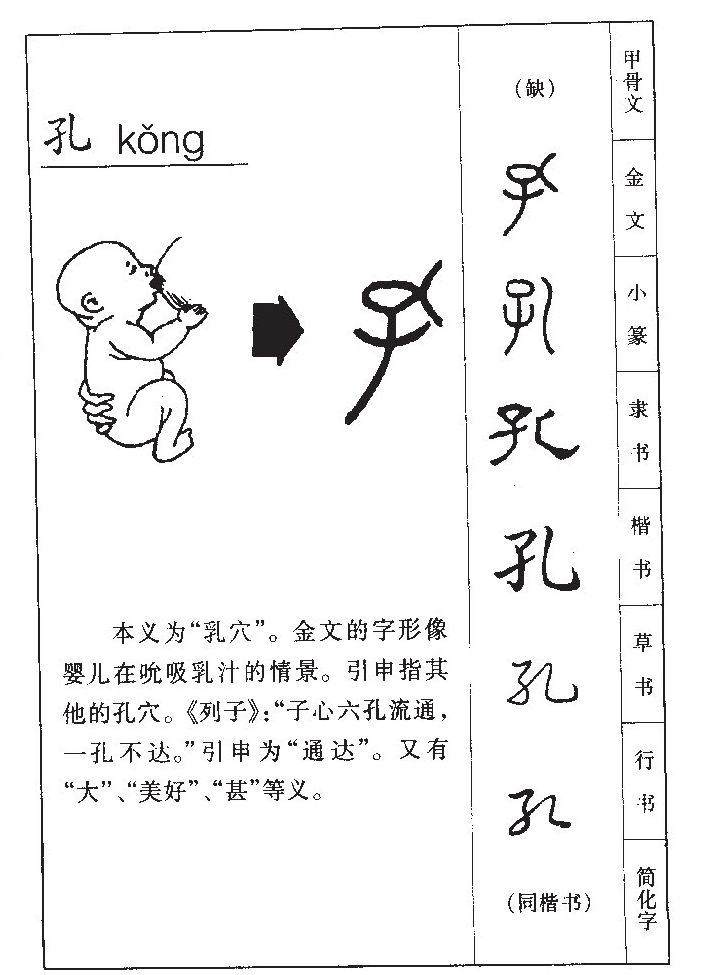 孔 kǒng
本义为“乳穴”。金文的字形像
婴儿在吮吸乳汁的情景。引申指其
他的孔穴。《列子》：“子心六孔流通，
一孔不达。”引申为“通达”。又有
“大”、“美好”、“甚”等义。
（缺） 甲骨文
孔 金文
孔 小篆
孔 隶书
孔 楷书
孔 草书
孔 行书
（同楷书） 简化字